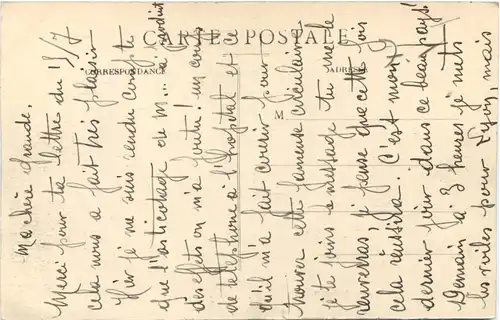 CARTE POSTALE
CORRESPONDANCE
ADRESSE
M
Ma chère grande,
Merci pour ta lettre du 15/7
cela nous a fait très plaisir
Hier je ne me suis rendu compte
que l'asticotage où M... a conduit
des effets on m'a foutu! un coup
de téléphone à l'hôpital et ce
qu'il m'a fait courir pour
trouver cette fameuse circulaire
je te joins le message tu me le
renverras, je pense que cette fois
cela réussira. C'est mon
dernier jour dans ce beau pays!
Demain à 3 heures je mets
les voiles pour Lyon, mais